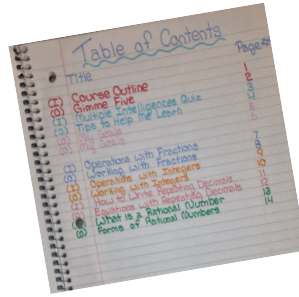 Table of Contents
Title Page #s
Course Outline 1
Gimme Five 2
Multiple Intelligences Quiz 3
Tips to Help Me Learn 4
My Goals 5
My Goals 6
Operations with Fractions 7
Working with Fractions 8
Operations with Integers 9
Working with Integers 10
How to Write Repeating Decimals 11
Equations with Repeating Decimals 12
What is a Rational Number 13
Forms of Rational Numbers 14